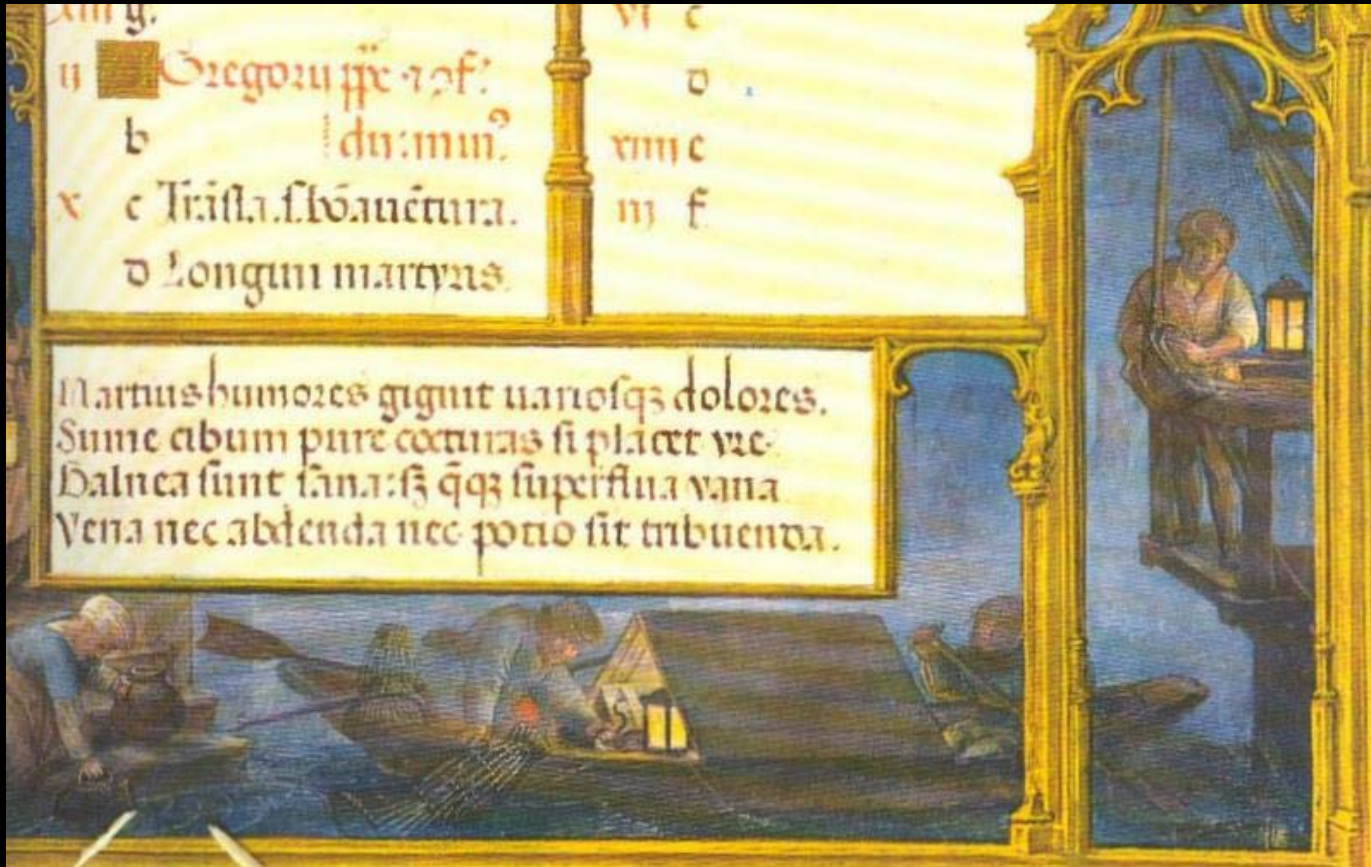 xiii g.
ij Gregorii ppe ⁊ ↄf.
b dn: min⁹.
x c Trãsla. s. bõauētura.
d Longini martyris.
vi c
d
xiiij e
iij f
Martius humores gignit uariosqꝫ dolores.
Sume cibum pure cocturas si placet vre.
Balnea sunt sana: sꝫ q̄qꝫ superflua vana
Vena nec abdenda nec potio sit tribuenda.